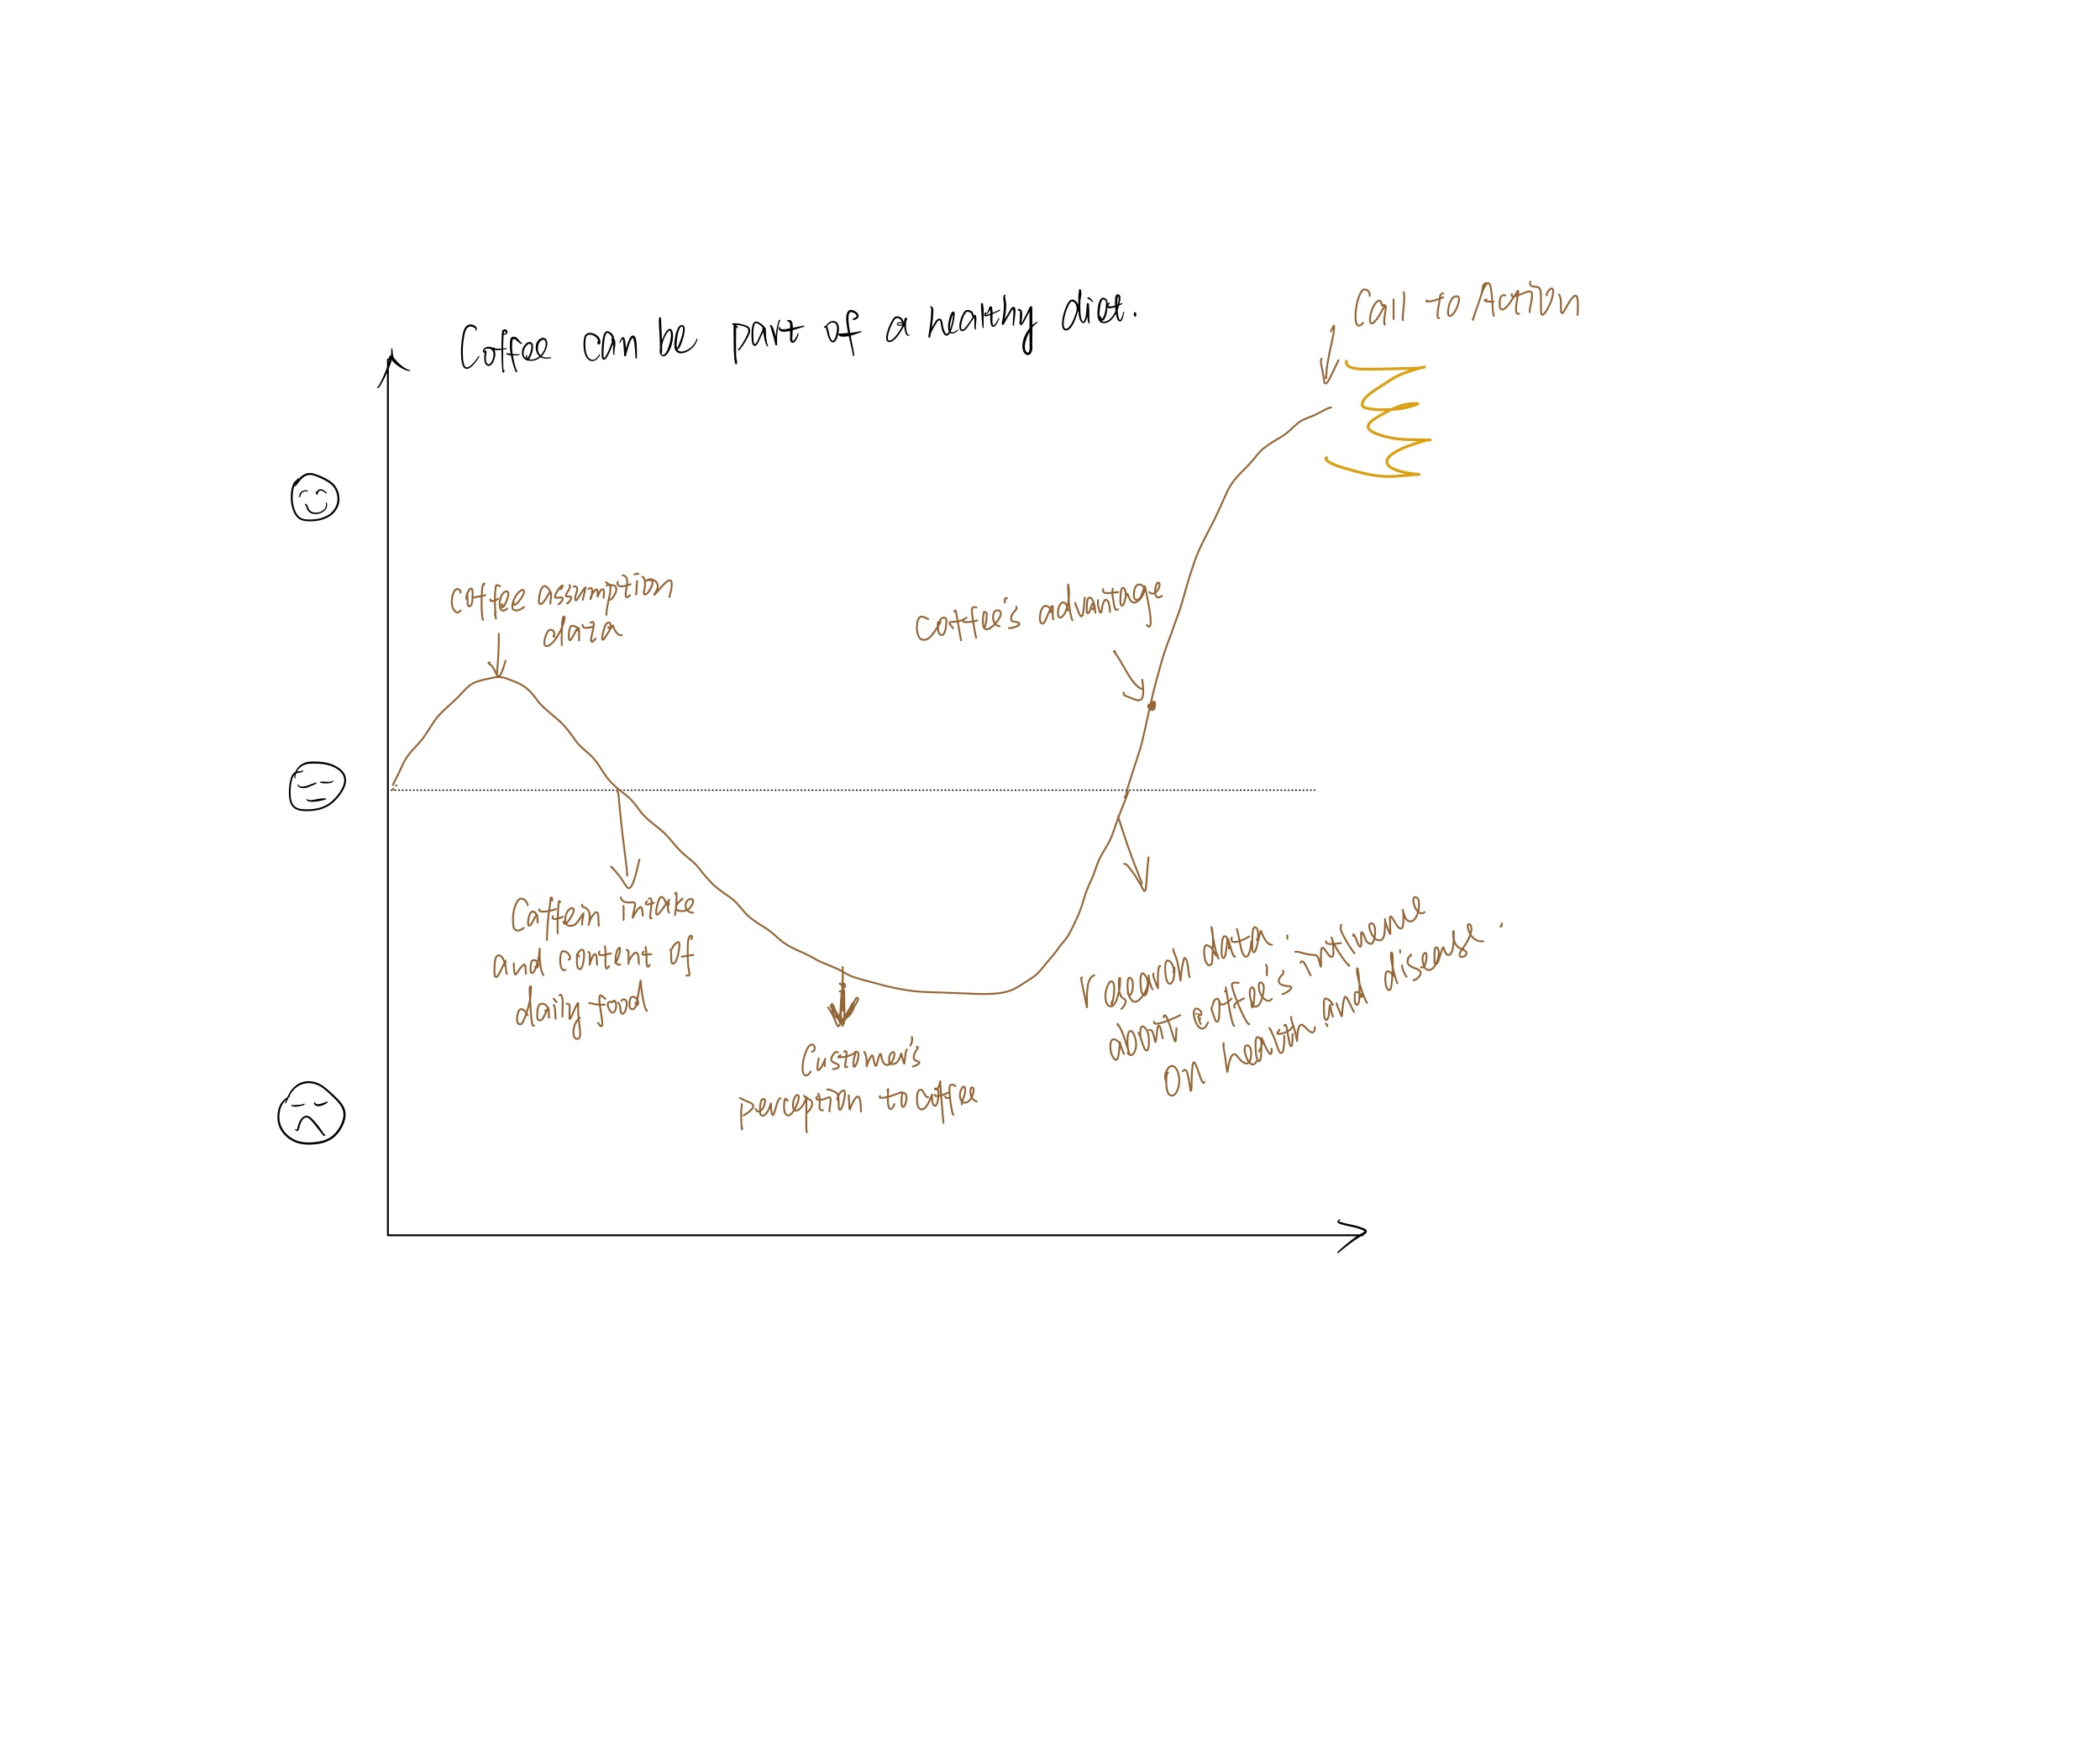 Coffee can be part of a healthy diet.
Call to Action
Coffee assumption
data
Coffee's advantage
Caffein intake
and content of
daing food
Customer's
perception to coffee
research data:
about coffee's influence
on health and disease.